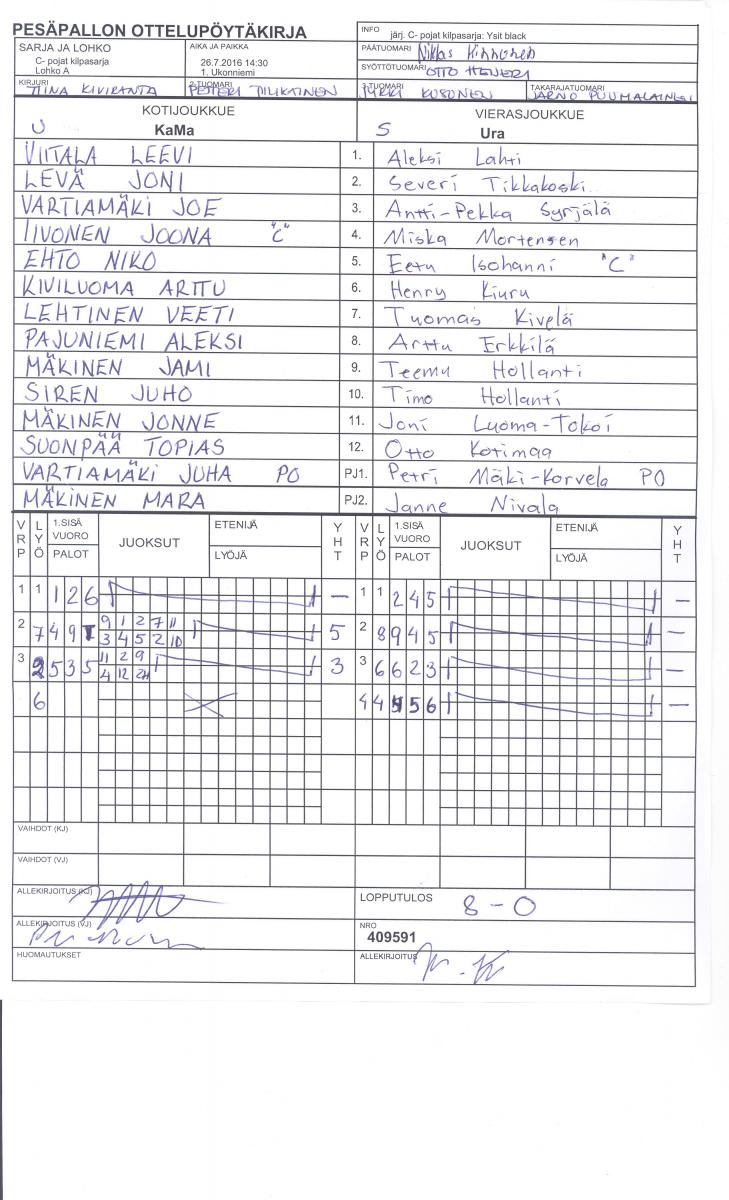 PESÄPALLON OTTELUPÖYTÄKIRJA
INFO järj. C- pojat kilpasarja: Ysit black
SARJA JA LOHKO
C- pojat kilpasarja
Lohko A
AIKA JA PAIKKA
26.7.2016 14:30
1. Ukonniemi
PÄÄTUOMARI Niklas Hinnonen
SYÖTTÖTUOMARI OTTO
KIRJURI TIINA KIVIRANTA
2-TUOMARI PETERI
3-TUOMARI JYRKI KUSONEN
TAKARAJATUOMARI JARNO PUUMALAINEN
KOTIJOUKKUE
U KaMa
VIERASJOUKKUE
S Ura
VIITALA LEEVI 1. Aleksi Lahti
LEVÄ JONI 2. Severi Tikkakoski
VARTIAMÄKI JOE 3. Antti-Pekka Syrjälä
IIVONEN JOONA "C" 4. Miska Mortensen
EHTO NIKO 5. Eetu Isohanni "C"
KIVILUOMA ARTTU 6. Henry Kiuru
LEHTINEN VEETI 7. Tuomas Kivelä
PAJUNIEMI ALEKSI 8. Arttu Erkkilä
MÄKINEN JAMI 9. Teemu Hollanti
SIREN JUHO 10. Timo Hollanti
MÄKINEN JONNE 11. Joni Luoma-Tokoi
SUONPÄÄ TOPIAS 12. Otto Kotimaa
VARTIAMÄKI JUHA PO PJ1. Petri Mäki-Korvela PO
MÄKINEN MARA PJ2. Janne Nivala
VRP LYÖ 1.SISÄ VUORO PALOT JUOKSUT ETENIJÄ LYÖJÄ YHT VRP LYÖ 1.SISÄ VUORO PALOT JUOKSUT ETENIJÄ LYÖJÄ YHT
1 1 1 2 6 – 1 1 2 4 5 –
2 7 4 9 9 1 2 7 11 5 2 8 9 4 5 –
3 4 5 2 10
3 2 5 3 5 11 2 9 3 3 6 6 2 3 –
4 12 2H
6 4 4 5 5 6 –
VAIHDOT (KJ)
VAIHDOT (VJ)
ALLEKIRJOITUS (KJ)
LOPPUTULOS 8 - 0
ALLEKIRJOITUS (VJ)
NRO
409591
HUOMAUTUKSET
ALLEKIRJOITUS